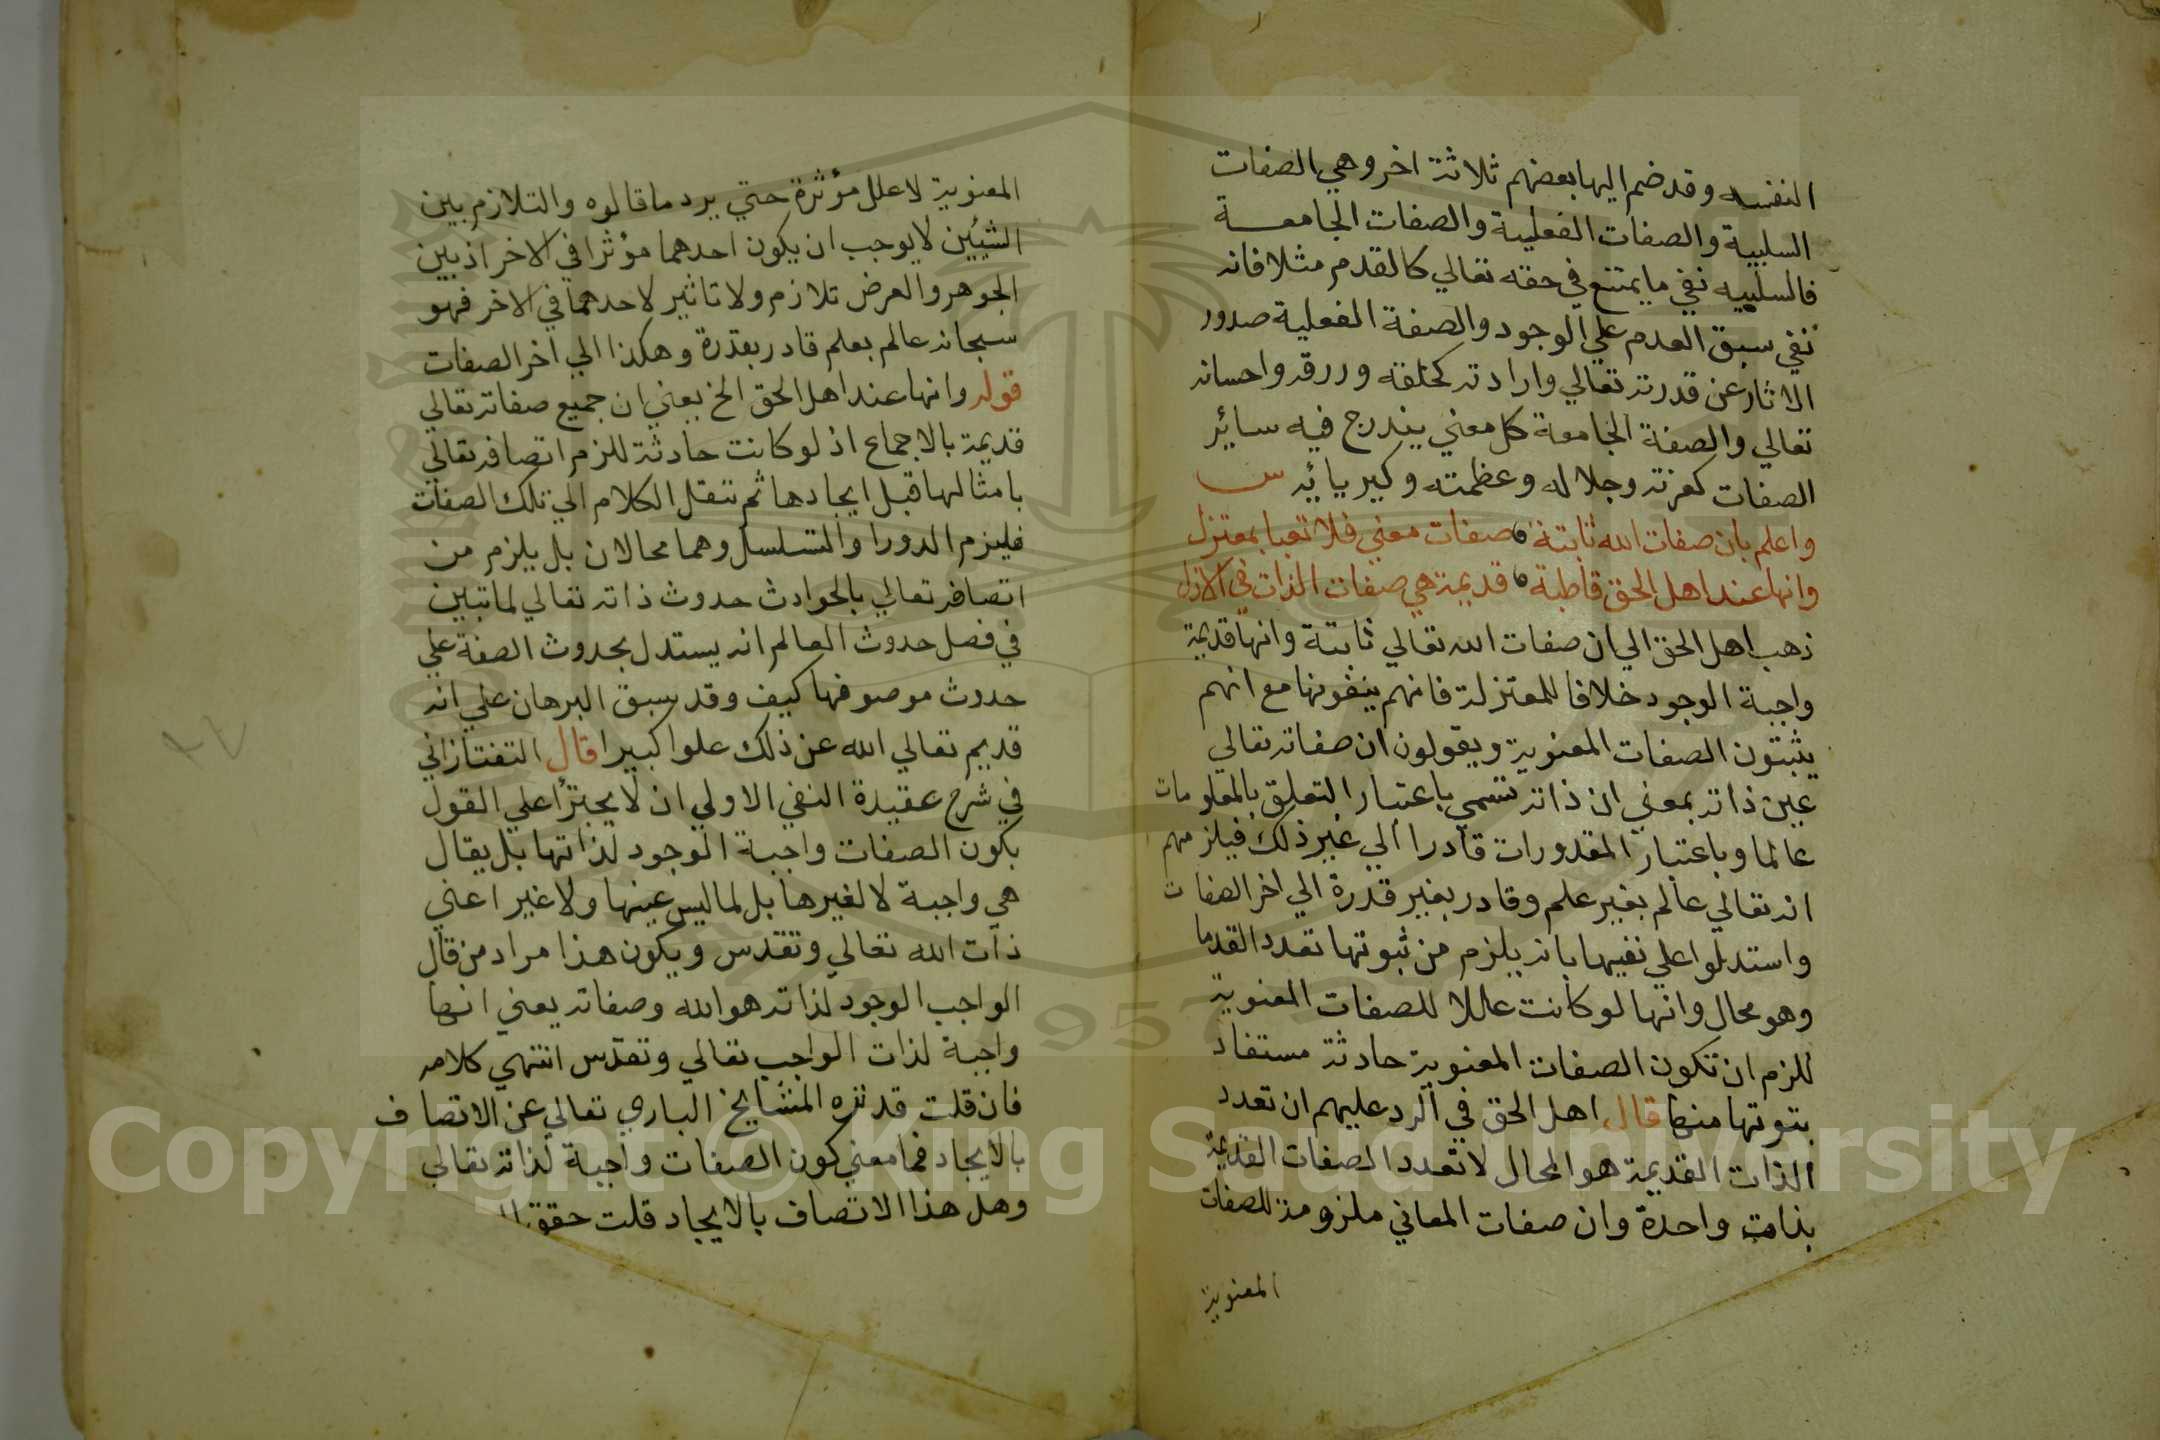 النفسه وقد ضم اليها بعضهم ثلاثة اخر وهي الصفات
السلبية والصفات الفعلية والصفات الجامعـــة
فالسلبيه نفي ما يمتنع في حقه تعالي كالقدم مثلا فانه
نفي سبق العدم علي الوجود والصفة الفعلية صدور
الاثار عن قدرته تعالي وارادته كخلقه ورزقه واحسانه
تعالي والصفة الجامعة كل معني يندرج فيه سائر
الصفات كعزته وجلاله وعظمته وكبريائه س
واعلم بان صفات الله ثابتة صفات معني فلا تعبا بمعتزل
وانها عند اهل الحق قاطبة قديمة هي صفات الذات في الازل
ذهب اهل الحق الي ان صفات الله تعالي ثابتة وانها قديمة
واجبة الوجود خلافا للمعتزلة فانهم ينفونها مع انهم
يثبتون الصفات المعنوية ويقولون ان صفاته تعالي
عين ذاته بمعني ان ذاته تسمي باعتبار التعلق بالمعلومات
عالما وباعتبار المقدورات قادرا الي غير ذلك فيلزمهم
انه تعالي عالم بغير علم وقادر بغير قدرة الي اخر الصفات
واستدلوا علي نفيها بانه يلزم من ثبوتها تعدد القدما
وهو محال وانها لو كانت عللا للصفات المعنوية
للزم ان تكون الصفات المعنوية حادثة مستفاد
بتوتها منها قال اهل الحق في الرد عليهم ان تعدد
الذات القديمة هو المحال لا تعدد الصفات القديمة
بذات واحدة وان صفات المعاني ملزومة للصفات
المعنوية
المعنوية لا علل مؤثرة حتي يرد ما قالوه والتلازم بين
الشيئين لا يوجب ان يكون احدهما مؤثرا في الاخر اذ بين
الجوهر والعرض تلازم ولا تاثير لاحدهما في الاخر فهو
سبحانه عالم بعلم قادر بقدرة وهكذا الي اخر الصفات
قوله وانها عند اهل الحق الخ يعني ان جميع صفاته تعالي
قديمة بالاجماع اذ لو كانت حادثة للزم اتصافه تعالي
بامثالها قبل ايجادها ثم ننقل الكلام الي تلك الصفات
فليزم الدور او التسلسل وهما محالان بل يلزم من
اتصافه تعالي بالحوادث حدوث ذاته تعالي لما تبين
في فصل حدوث العالم انه يستدل بحدوث الصفة علي
حدوث موصوفها كيف وقد سبق البرهان علي انه
قديم تعالي الله عن ذلك علوا كبيرا قال التفتازاني
في شرح عقيدة النفي الاولي ان لا يجترأ علي القول
بكون الصفات واجبة الوجود لذاتها بل يقال
هي واجبة لا لغيرها بل لما ليس عينها ولا غير اعني
ذات الله تعالي وتقدس ويكون هذا مراد من قال
الواجب الوجود لذاته هو الله وصفاته يعني انها
واجبة لذات الواجب تعالي وتقدس انتهي كلامه
فان قلت قد نزه المشايخ الباري تعالي عن الاتصاف
بالايجاد فما معني كون الصفات واجبة لذاته تعالي
وهل هذا الاتصاف بالايجاد قلت حقق
Copyright © King Saud University